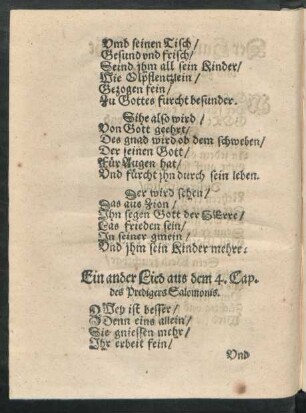 Vmb seinen Tisch/
Gesund vnd frisch/
Seind jhm all sein Kinder/
Wie Olpflentzlein/
Gezogen fein/
Zu Gottes furcht besunder.
Sihe also wird/
Von Gott geehrt/
Des gnad wird ob dem schweben/
Der seinen Gott/
Für Augen hat/
Vnd fürcht jhn durch sein leben.
Der wird sehen/
Das aus Zion/
Ihn segen Gott der HErre/
Las frieden sein/
In seiner gmein/
Vnd jhm sein Kinder mehre:
Ein ander Lied aus dem 4. Cap.
des Predigers Salomonis.
ZWey ist besser/
Denn eins allein/
Sie gniessen mehr/
Ihr erbeit fein/
Vnd